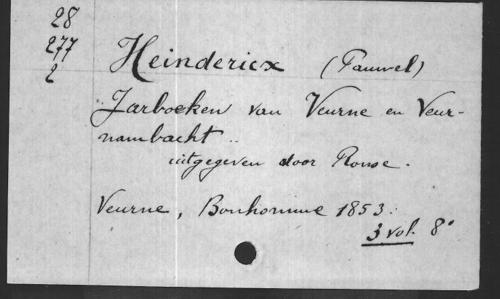 28
277
2
Heinderickx (Pauwel)
Jarboeken van Veurne en Veur-
nambacht ..
uitgegeven door Ronse.
Veurne, Bonhomme 1853.
3 vol. 8°